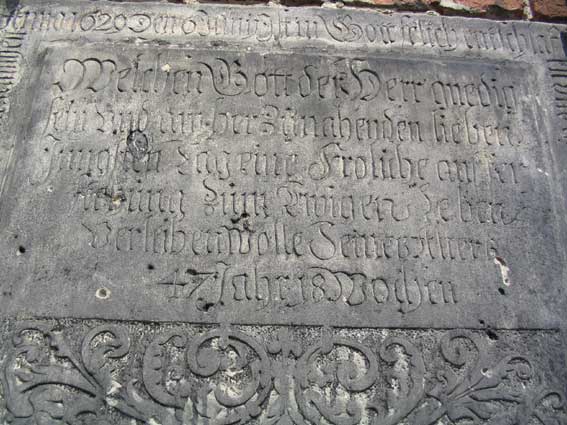 Anno 1629 Den 6 Junij ist in Gott selich entschlaf
Welchen Gott der Herr gnedig
sein und an der Zunahenden lieben
Jungsten Tag eine Froliche aufer
stehung zum Ewigen Leben
Verleihen wolle Seines Alters
47 Jahr 18 Wochen